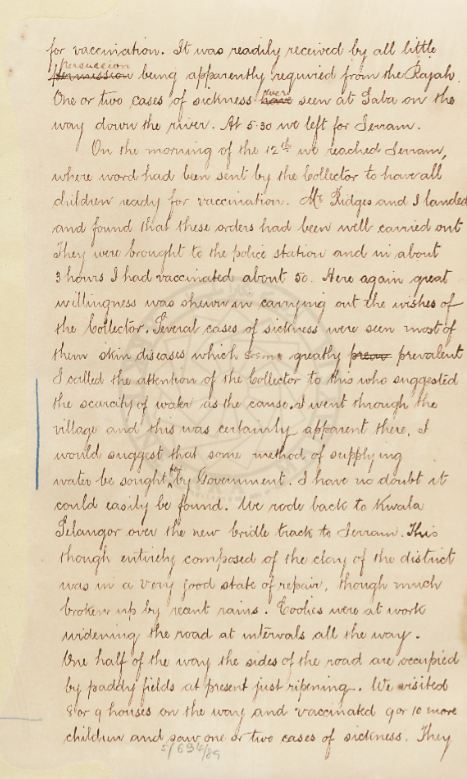 for vaccination. It was readily received by all little
persuasion
permission being apparently required from the Rajah.
were
One or two cases of sickness have seen at Jabu on the
way down the river. At 5.30 we left for Jerram.
On the morning of the 12th we reached Jerram,
where word had been sent by the Collector to have all
children ready for vaccination. Mr Ridges and I landed
and found that these orders had been well carried out
They were brought to the police station and in about
3 hours I had vaccinated about 50. Here again great
willingness was shewn in carrying out the wishes of
the Collector. Several cases of sickness were seen most of
them skin diseases which seems greatly preva prevalent
I called the attention of the Collector to this who suggested
the scarcity of water as the cause. I went through the
village and this was certainly apparent there. I
would suggest that some method of supplying
water be sought by Government. I have no doubt it
could easily be found. We rode back to Kwala
Selangor over the new bridle track to Jerram. This
though entirely composed of the clay of the district
was in a very good state of repair, though much
broken up by recent rains. Coolies were at work
widening the road at intervals all the way.
One half of the way the sides of the road are occupied
by paddy fields at present just ripening. We visited
8 or 9 houses on the way and vaccinated 9 or 10 more
children and saw one or two cases of sickness. They
636/89